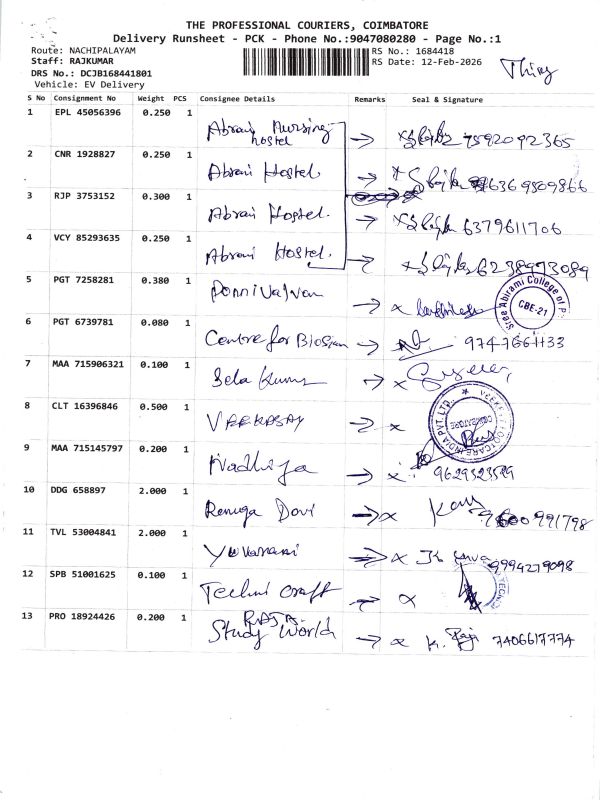 THE PROFESSIONAL COURIERS, COIMBATORE
Delivery Runsheet - PCK - Phone No.:9047080280 - Page No.:1
Route: NACHIPALAYAM RS No.: 1684418
Staff: RAJKUMAR RS Date: 12-Feb-2026
DRS No.: DCJB168441801
Vehicle: EV Delivery
S No Consignment No Weight PCS Consignee Details Remarks Seal & Signature
1 EPL 45056396 0.250 1 Abrami Nursing hostel 7592092365
2 CNR 1928827 0.250 1 Abrami Hostel.
3 RJP 3753152 0.300 1 Abrami Hostel. 6379611706
4 VCY 85293635 0.250 1 Abrami Hostel. 6238973089
5 PGT 7258281 0.380 1 Sree Abirami College of CBE-21
6 PGT 6739781 0.080 1 Centre for 9747661133
7 MAA 715906321 0.100 1
8 CLT 16396846 0.500 1 FOOTCARE INDIA PVT. LTD. COIMBATORE
9 MAA 715145797 0.200 1
10 DDG 658897 2.000 1 Renuga Devi
11 TVL 53004841 2.000 1 Yuvarani 9994279098
12 SPB 51001625 0.100 1 Techni craft
13 PRO 18924426 0.200 1 RAJA Study World K. Raji 7406617774